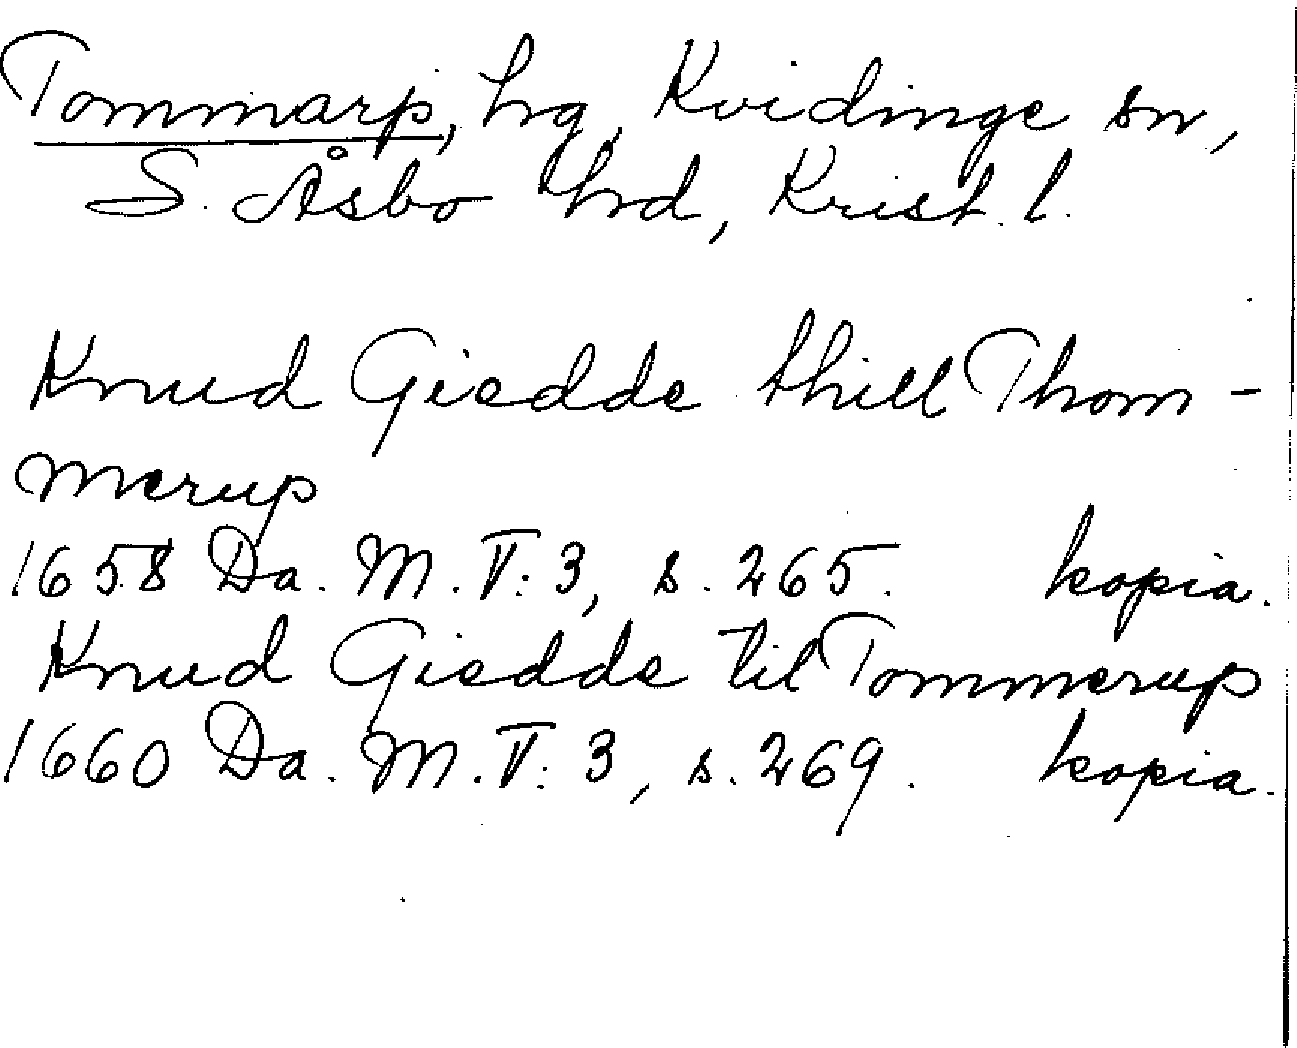 Tommarp, hg, Kvidinge sn,
S. Åsbo hd, Krist. l.
Knud Giedde thill Thom-
merup
1658 Da. M. V: 3, s. 265. kopia.
Knud Giedde til Tommerup
1660 Da. M. V: 3, s. 269. kopia.